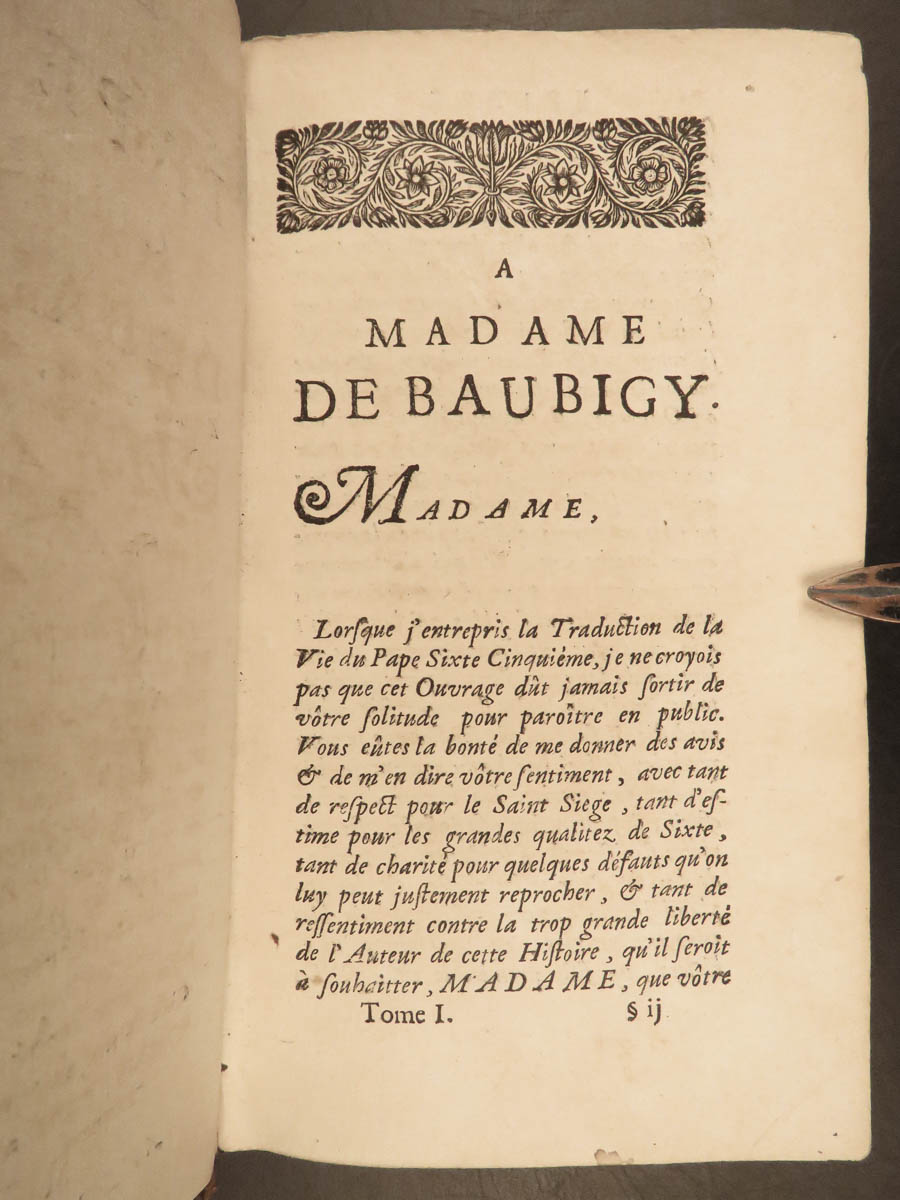 A
MADAME
DE BAUBIGY.
MADAME,
Lorſque j'entrepris la Traduction de la
Vie du Pape Sixte Cinquiéme, je ne croyois
pas que cet Ouvrage dût jamais ſortir de
vôtre ſolitude pour paroître en public.
Vous eûtes la bonté de me donner des avis
& de m'en dire vôtre ſentiment, avec tant
de reſpect pour le Saint Siege, tant d'eſ-
time pour les grandes qualitez de Sixte,
tant de charité pour quelques défauts qu'on
luy peut juſtement reprocher, & tant de
reſſentiment contre la trop grande liberté
de l'Auteur de cette Hiſtoire, qu'il ſeroit
à ſouhaitter, MADAME, que vôtre
Tome I. § ij